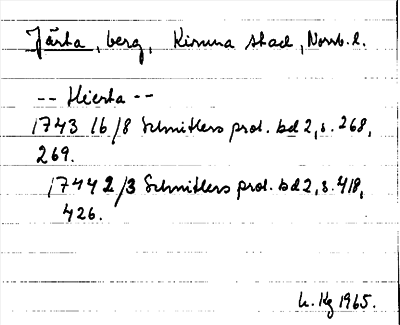 Järta, berg, Kiruna stad, Norrb. l.
-- Hierta --
1743 16/8 Schnitlers prot. bd 2, s. 268,
269.
1744 2/3 Schnitlers prot. bd 2, s. 418,
426.
h. Kg 1965.